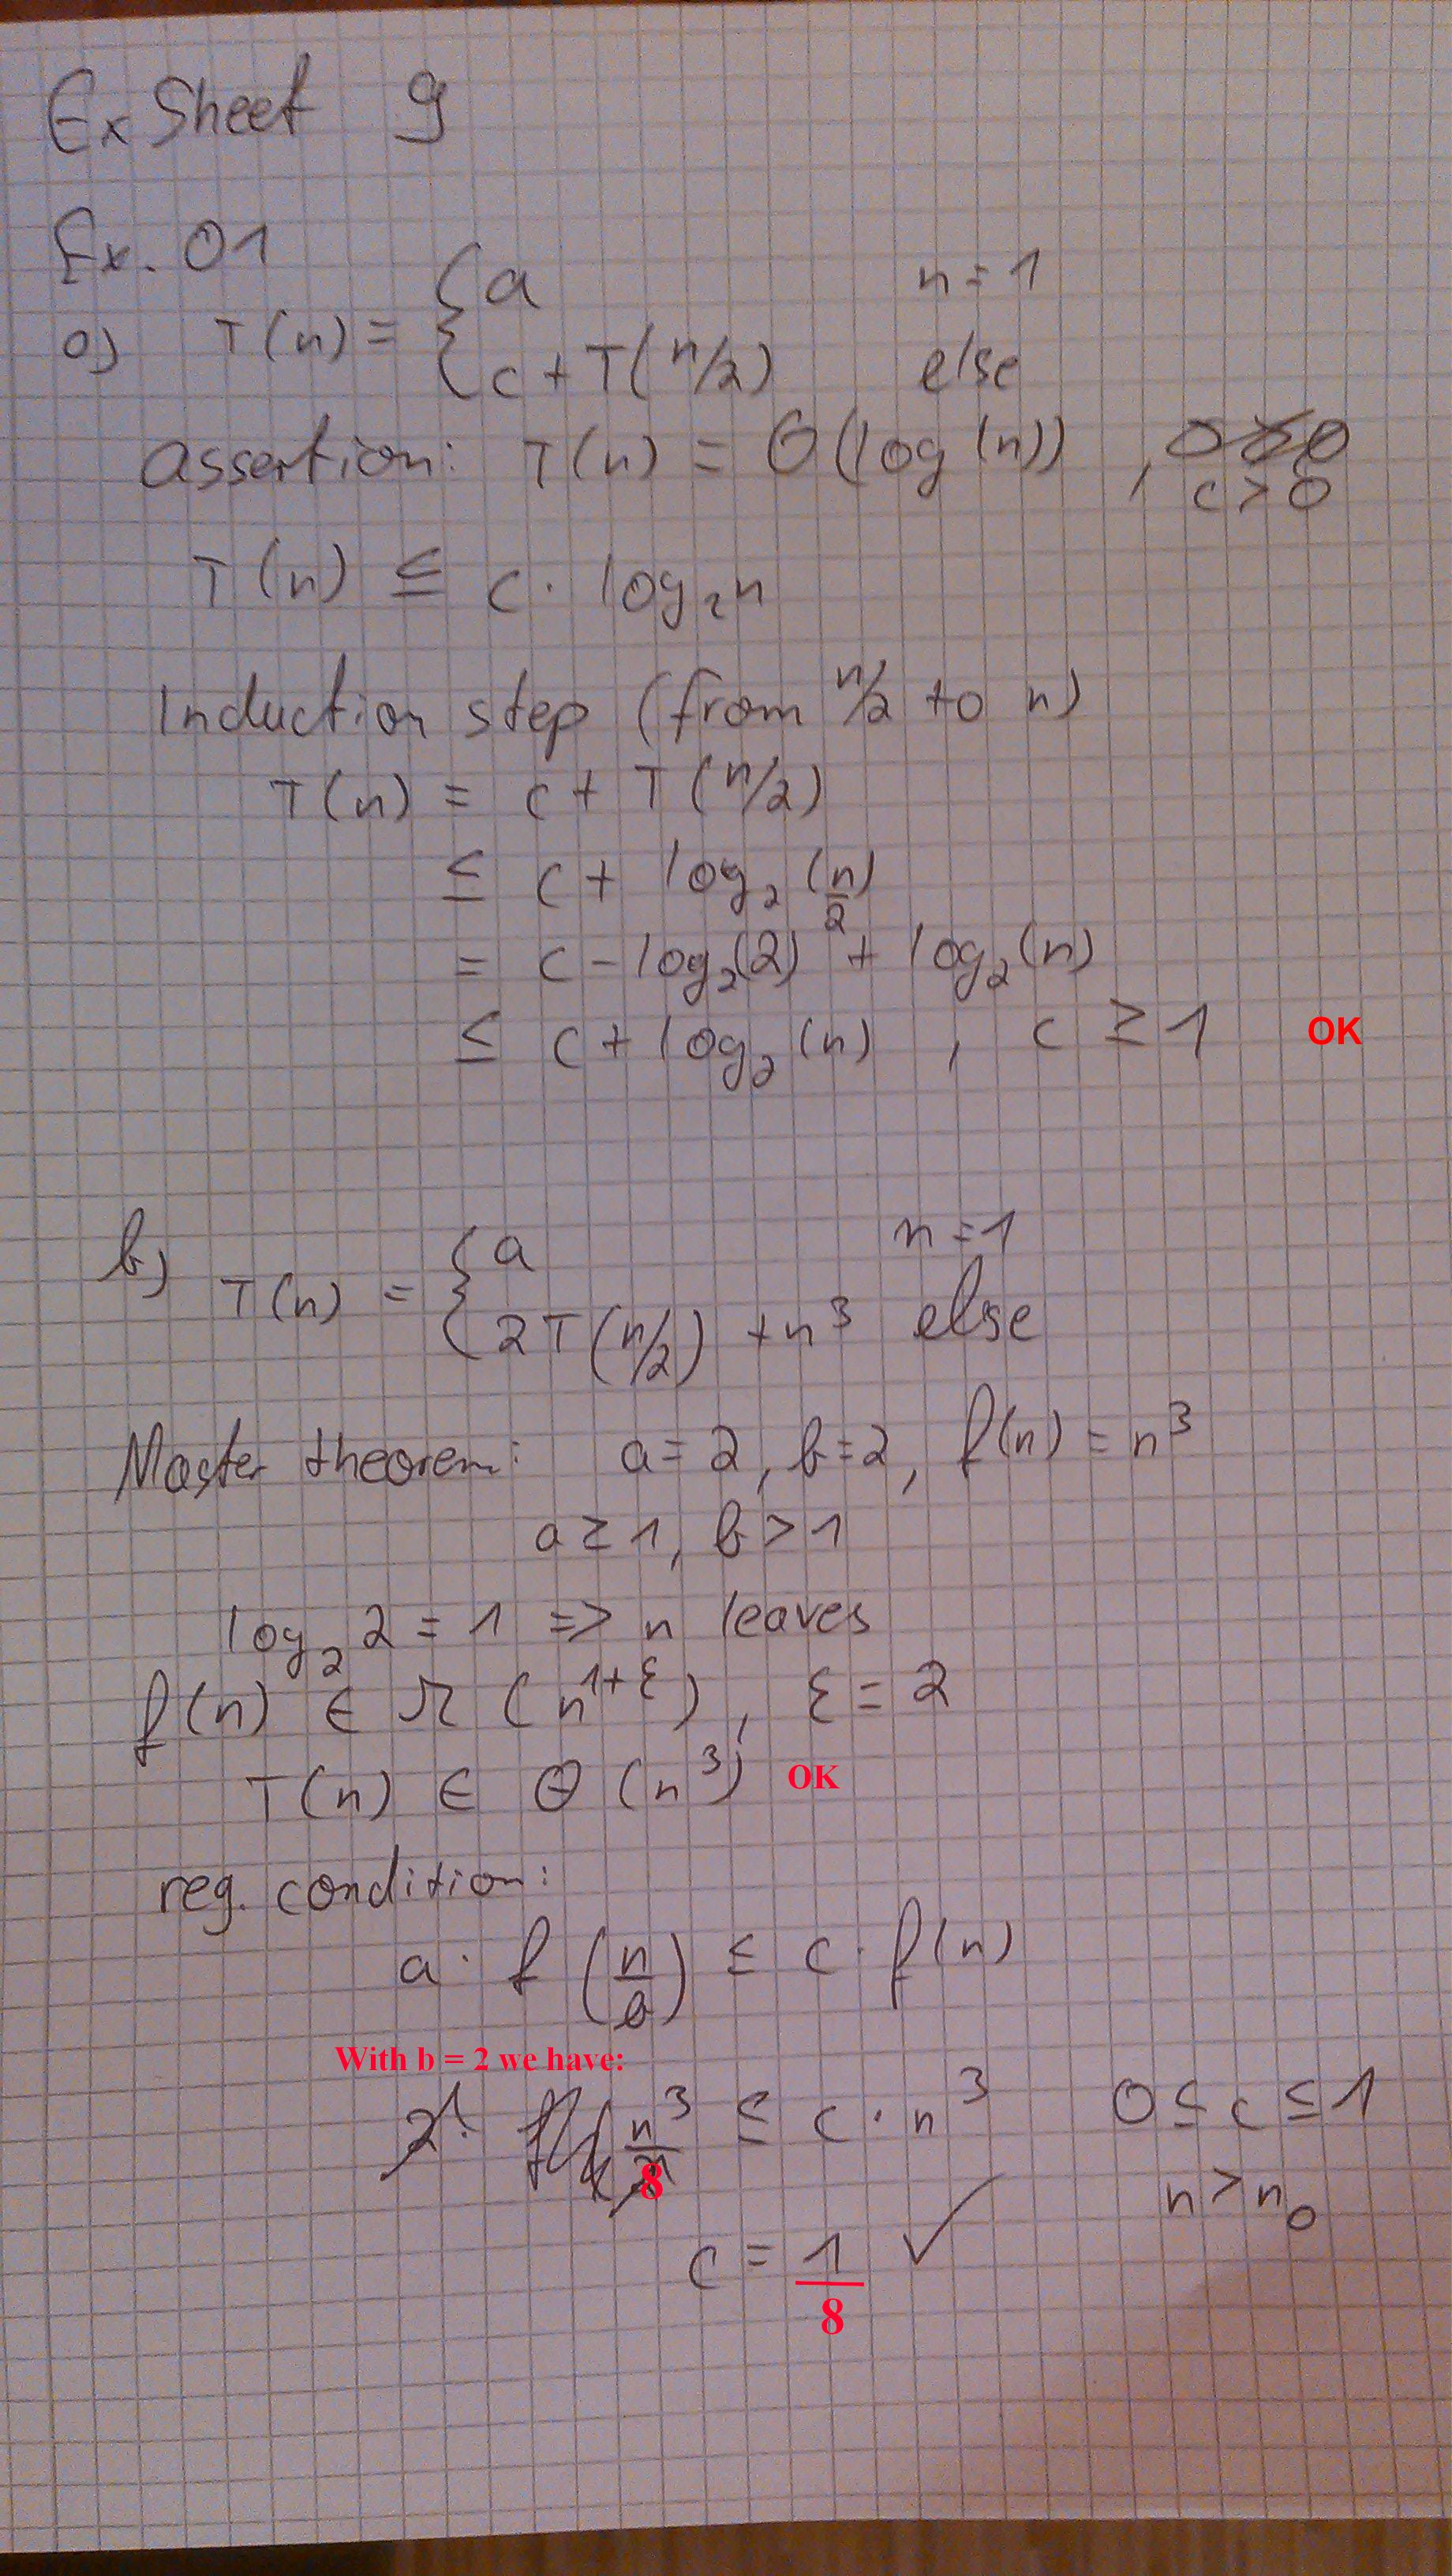 Ex Sheet 9
Ex. 01
a) T(n) = { a n = 1
c + T(n/2) else
Assertion: T(n) = O(log(n)) , c > 0
T(n) ≤ c · log₂n
Induction step (from n/2 to n)
T(n) = c + T(n/2)
≤ c + log₂(n/2)
= c - log₂(2) + log₂(n)
≤ c + log₂(n) , c ≥ 1 OK
b) T(n) = { a n = 1
2T(n/2) + n³ else
Master theorem: a = 2, b = 2, f(n) = n³
a ≥ 1, b > 1
log₂ 2 = 1 => n leaves
f(n) ∈ Ω (n^(1+ε)), ε = 2
T(n) ∈ Θ (n³) OK
reg. condition:
a · f (n/b) ≤ c · f(n)
With b = 2 we have:
n³/8 ≤ c · n³ 0 ≤ c ≤ 1
n > n₀
c = 1/8 ✓